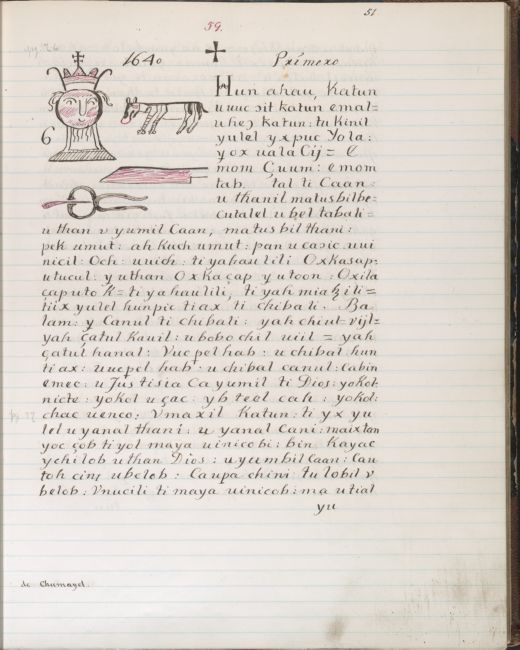 51
59.
1640 + Primero
6
Hun ahau, Katun
uuuc sit katun emal=
uhes katun: tu kinil
yulel yx puc Yola:
y ox uala Cij= E
mom Çuum: emom
tab. tal ti Caan:
u thanil matusbilbe=
cutalel u bel tabali=
u than v yumil Caan, matus bil thani:
pek umut: ah kuch umut: pan u cavic uui
nicil: Och: uuich: ti yahaulili Oxkasap=
utucul: y uthan Oxkaçap y utoon: Oxila
çaputo K= ti yahaulili, ti yah
tiix yulel hunpic tiax ti chibali: Ba
lam: y Canul ti chibali: yah chiut=vijl=
yah çatul kauil: u bobo chil uiil = yah
çatul hanal: Vuc pel hab: u chibal hun
ti ax: uucpel hab: u chibal canul: Cabin
emec: u Jus tisia Ca yumil ti Dios: yokol
nicte: yokol u çac: yb teol cah: yokol:
chac uenco: Vmaxil Katun: ti yx yu
lel u yanal thani: u yanal Cani: maixtan
yoc çob ti yol maya uinicobi: bin Kayac
ychilob u than Dios: u yumbil Caan: Cau
toh cinj ubelob: Caupa chini tulobil v
belob: Vnucili ti maya uinicob: ma utial
yu
de Chumayel.